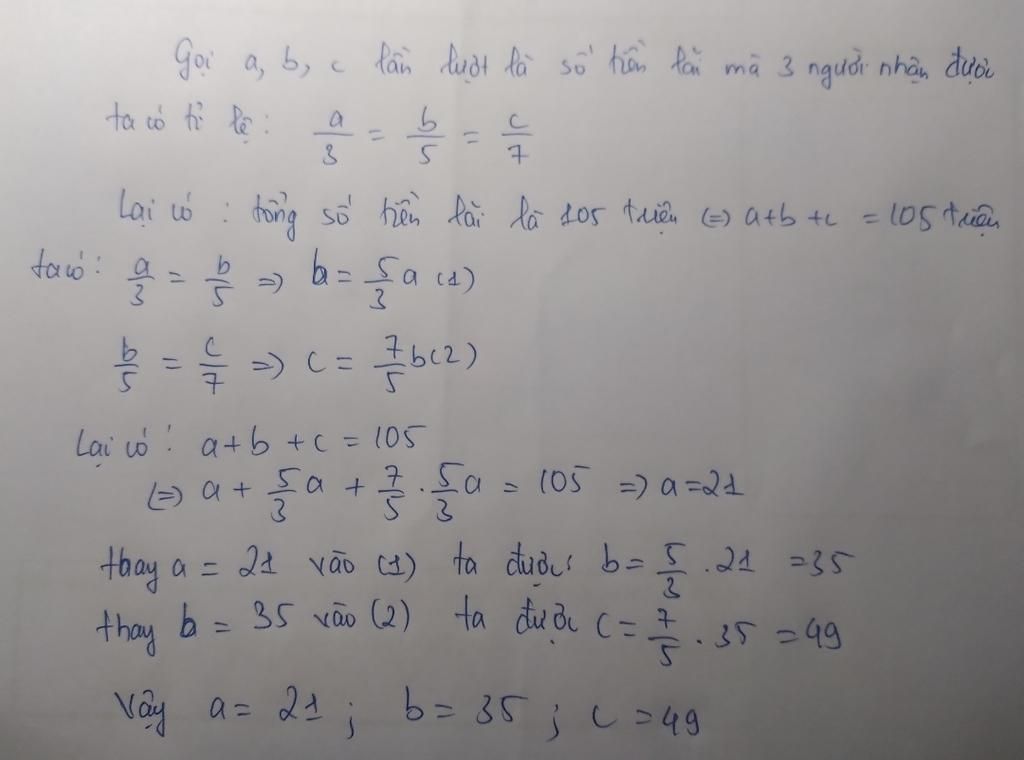 Gọi a, b, c lần lượt là số tiền lãi mà 3 người nhận được
ta có tỉ lệ: a/3 = b/5 = c/7
Lại có : tổng số tiền lãi là 105 triệu (=) a+b+c = 105 triệu
ta có: a/3 = b/5 => b = 5/3 a (1)
b/5 = c/7 => c = 7/5 b (2)
Lại có : a+b+c = 105
(=) a + 5/3 a + 7/5 . 5/3 a = 105 => a=21
thay a = 21 vào (1) ta được: b = 5/3 . 21 = 35
thay b = 35 vào (2) ta được c = 7/5 . 35 = 49
Vậy a = 21 ; b = 35 ; c = 49